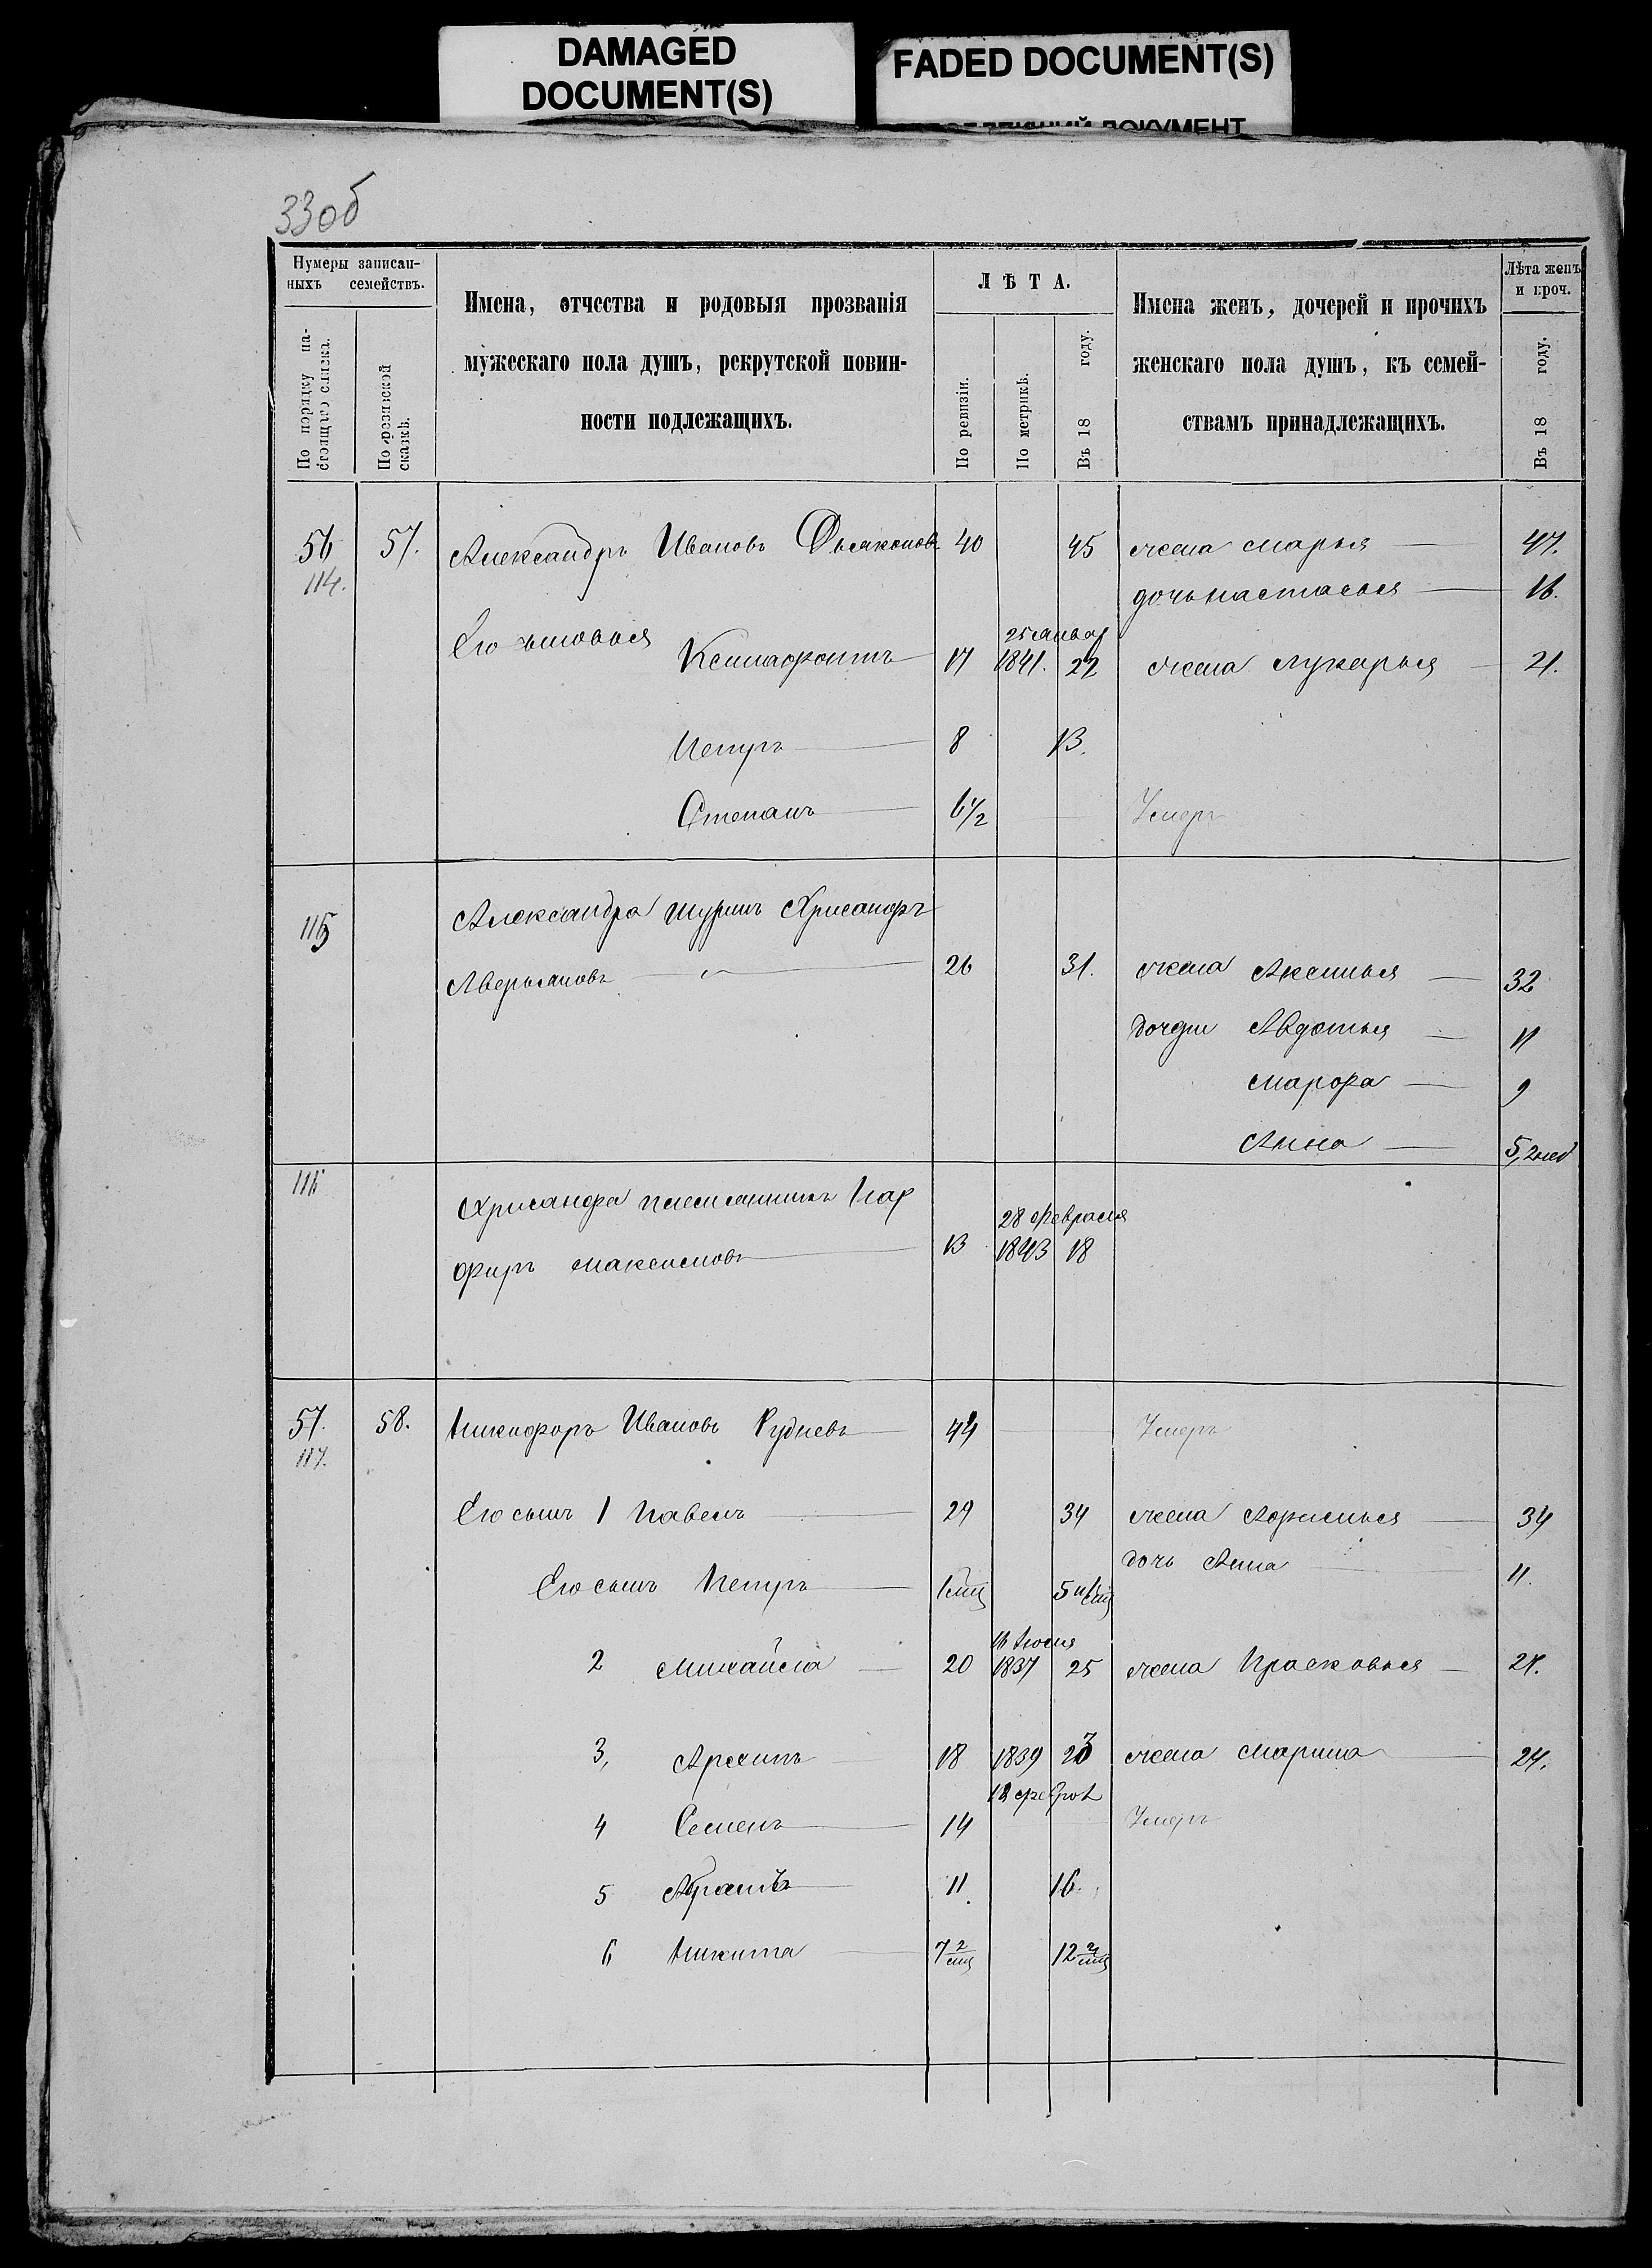 DAMAGED
DOCUMENT(S)
FADED DOCUMENT(S)
ДОКУМЕНТ
33об
Нумеры записан-
ныхъ семействъ.
По порядку на-
стоящаго списка.
По ревизской
сказкѣ.
Имена, отчества и родовыя прозванія
мужескаго пола душъ, рекрутской повин-
ности подлежащихъ.
ЛѢТА.
По ревизіи.
По метрикѣ.
Въ 18 году.
Имена женъ, дочерей и прочихъ
женскаго пола душъ, къ семей-
ствамъ принадлежащихъ.
Лѣта женъ
и проч.
Въ 18 году.
56 57. Александръ Ивановъ Дьяконовъ 40 45 жена Марья 47.
114. дочь Настасья 16.
Его сыновья 25 январ
Ксенофонтъ 17 1841. 22 жена Лукерья 21.
Петръ 8 13.
Степанъ 6 1/2 Умеръ
115 Александра шуринъ Хрисанфъ
Аверьяновъ 26 31. жена Аксинья 32
дочери Авдотья 11
Марфа 9
Анна 5, 2 нед
116 Хрисанфа племянникъ Пар 28 февраля
фиръ Максимовъ 13 1843 18
57. 58. Никифоръ Ивановъ Рудневъ 44 Умеръ
117.
Его сынъ 1 Павелъ 29 34 жена Афимья 34
дочь Анна 11.
Его сынъ Петръ 6 мц 5 и 6 мц
16 Июня
2 Михайла 20 1837 25 жена Прасковья 27.
3, Архипъ 18 1839 23 жена Марина 24.
18 феврал
4 Семенъ 14 Умеръ
5 Абрамъ 11. 16.
6 Никита 7 2/мц 12 2/мц